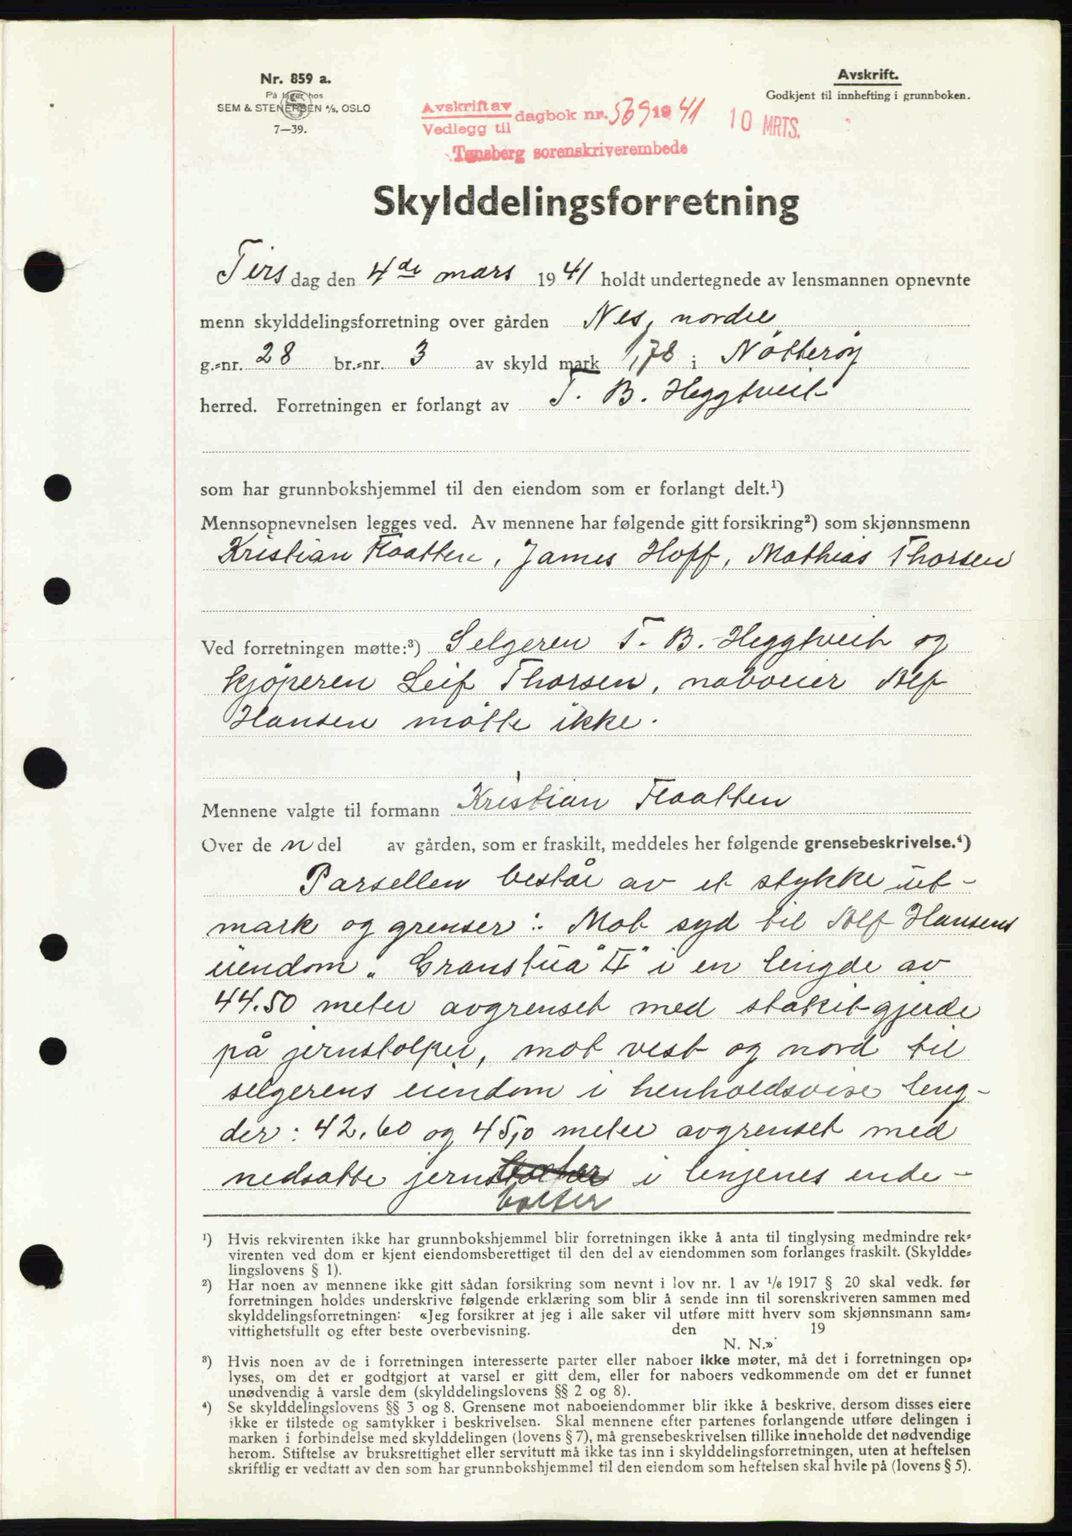 Nr. 859 a.
På lager hos
SEM & STENERSEN A/S, OSLO
7—39.
Avskrift.
Godkjent til innhefting i grunnboken.
Avskrift av
Vedlegg til
dagbok nr. 569 1941 10 MRTS.
Tønsberg sorenskriverembede
Skylddelingsforretning
Tirsdag den 4de mars 1941 holdt undertegnede av lensmannen opnevnte
menn skylddelingsforretning over gården Nes, nordre
g.-nr. 28 br.-nr. 3 av skyld mark 1,78 i Nötteröy
herred. Forretningen er forlangt av T. B. Heggtveit
som har grunnbokshjemmel til den eiendom som er forlangt delt.¹)
Mennsopnevnelsen legges ved. Av mennene har følgende gitt forsikring²) som skjønnsmenn
Kristian Flaatten, James Hoff, Mathias Thorsen
Ved forretningen møtte:³) Selgeren T. B. Heggtveit og
kjöperen Leif Thorsen, naboeier Alf
Hansen mötte ikke.
Mennene valgte til formann Kristian Flaatten
Over de n del av gården, som er fraskilt, meddeles her følgende grensebeskrivelse.⁴)
Parsellen består av et stykke ut-
mark og grenser: Mot syd til Alf Hansens
eiendom „Granstua II" i en lengde av
44.50 meter avgrenset med stakitgjerde
på jernstolper, mot vest og nord til
selgerens eiendom i henholdsvise leng-
der: 42,60 og 45,0 meter avgrenset med
nedsatte jern i linjenes ende-
bolter
¹) Hvis rekvirenten ikke har grunnbokshjemmel blir forretningen ikke å anta til tinglysing medmindre rek-
virenten ved dom er kjent eiendomsberettiget til den del av eiendommen som forlanges fraskilt. (Skyldde-
lingslovens § 1).
²) Har noen av mennene ikke gitt sådan forsikring som nevnt i lov nr. 1 av 1/6 1917 § 20 skal vedk. før
forretningen holdes underskrive følgende erklæring som blir å sende inn til sorenskriveren sammen med
skylddelingsforretningen: «Jeg forsikrer at jeg i alle saker vil utføre mitt hverv som skjønnsmann sam-
vittighetsfullt og efter beste overbevisning. den 19
N. N.»
³) Hvis noen av de i forretningen interesserte parter eller naboer ikke møter, må det i forretningen op-
lyses, om det er godtgjort at varsel er gitt dem, eller for naboers vedkommende om det er funnet
unødvendig å varsle dem (skylddelingslovens §§ 2 og 8).
⁴) Se skylddelingslovens §§ 3 og 8. Grensene mot naboeiendommer blir ikke å beskrive, dersom disses eiere
ikke er tilstede og samtykker i beskrivelsen. Skal mennene efter partenes forlangende utføre delingen i
marken i forbindelse med skylddelingen (lovens § 7), må grensebeskrivelsen tillike inneholde det nødvendige
herom. Stiftelse av bruksrettighet eller servitutt må ikke tas inn i skylddelingsforretningen, uten at heftelsen
skriftlig er vedtatt av den som har grunnbokshjemmel til den eiendom som heftelsen skal hvile på (lovens § 5).